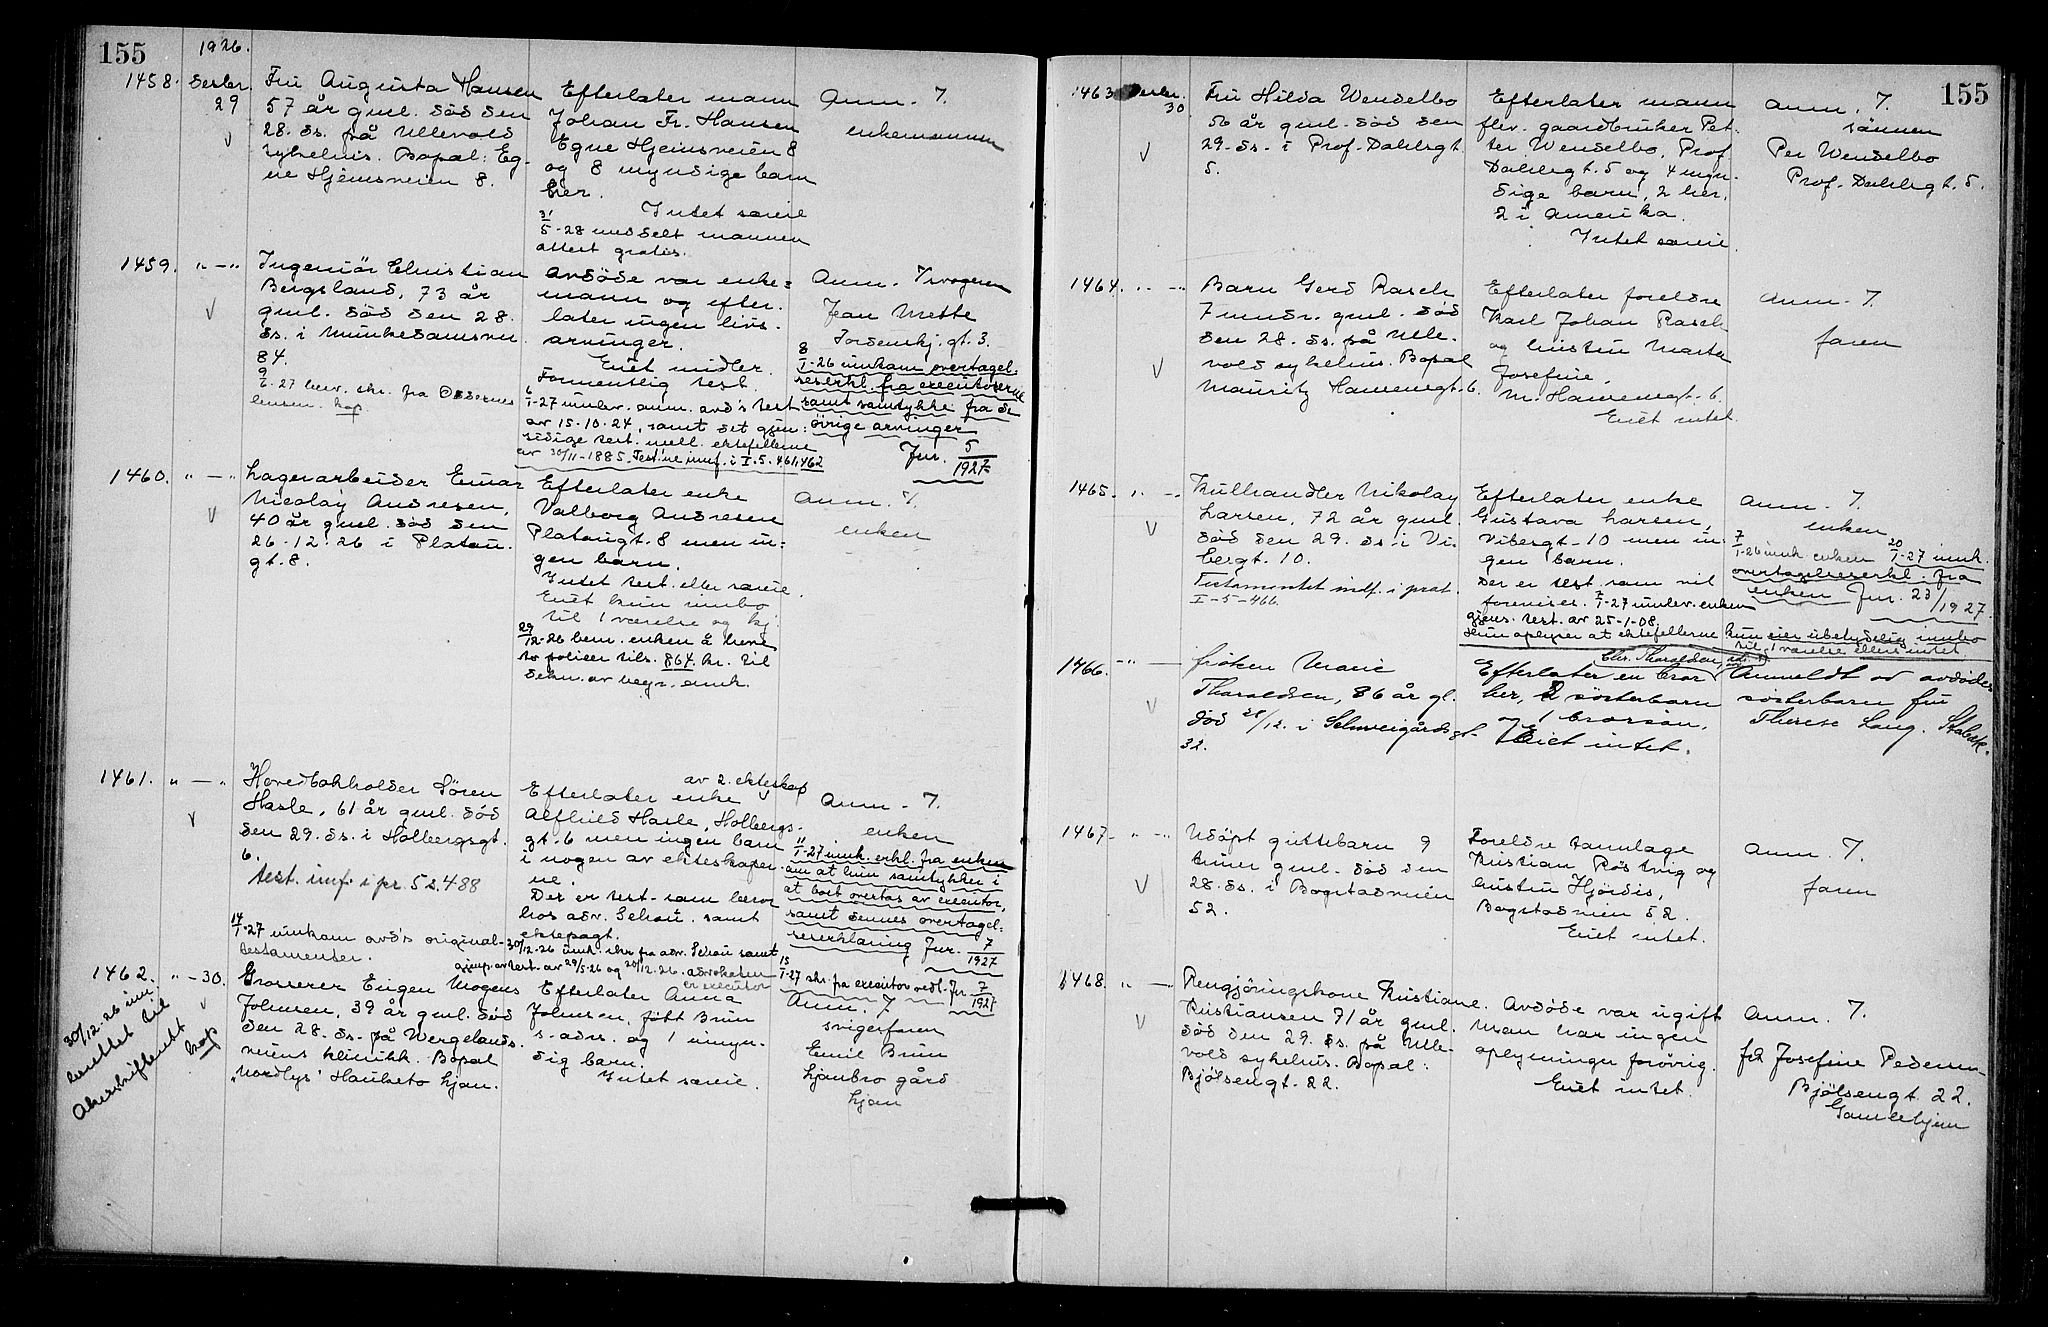 155
1926.
1458. Desbr. 29
Fru Augusta Hansen
57 år gml. död den
28. ds. på Ullevold
sykehus. Bopal: Eg-
ne Hjemsveien 8.
Efterlater mann
Johan Fr. Hansen
Egne Hjemsveien 8
og 8 myndige barn
her.
Intet særeie
31/5-28 meddelt mannen
attest gratis.
Anm. 7.
enkemannen
1459. " — "
Ingeniör Christian
Bergsland, 73 år
gml. död den 28.
ds. i Munkedamsvn.
84.
9/2-27 herv. skr. fra
kop.
Avdöde var enke=
mann og efter-
later ingen livs-
arvinger.
Eiet midler.
Formentlig test.
6/1-27 innlev. anm. avd's test
av 15-10-24, samt det gjen:
sidige test. mell. ektefellerne
av 30/11-1885. Test'ne innf. i I.5.461.462
Anm.
Jean Mette
Tordenskj. gt. 3.
8/1-26 innkom overtagel:
seserkl. fra executorerne
samt samtykke fra de
övrige arvinger
Jur. 5/1927
1460. " — "
Lagerarbeider Einar
Nicolay Andresen,
40 år gml. död den
26-12-26 i Platou.
gt. 8.
Efterlater enke
Valborg Andresen
Platougt. 8 men in:
gen barn.
Intet test. eller særeie.
Eiet kun innbo
til 1 værelse og kj.
29/12-26 bem. enken å heve
to policer tils. 864 kr. til
dekn. av begr. omk.
Anm. 7.
enken
1461. " — "
Hovedbokholder Sören
Hasle, 61 år gml. död
den 29. ds. i Holbergsgt.
6.
test. innf. i pr. 5 s. 488
14/1-27 innkom avd's original-
testamenter.
av 2. ekteskap
Efterlater enke
Alfhild Hasle, Holbergs-
gt. 6 men ingen barn
i nogen av ekteskaper-
ne.
Der er test. som beror
hos adv. Schou, samt
ektepagt.
30/12-26 innk. skr. fra adv. Schou samt
gjenp. av test. av 29/5-26 og 20/12.26. advokaten
er executor
Anm. 7.
enken
11/1-27 innk. erkl. fra enken
om at hun samtykker i
at boet overtas av executor,
samt dennes overtagel:
seserklæring Jur. 7/1927
15/1-27 skr. fra executor vedl. Jr. 7/1927
1462. " — 30.
30/12.26 inn
berettet til
Akerskifterett
kop
Grosserer Eugen Mogens
Johnsen, 39 år gml. död
den 28. ds. på Wergelands-
veiens klinikk. Bopal
"Nordlys" Hauketo Ljan.
Efterlater Anna
Johnsen, född Brun
s. adr. og 1 umyn-
dig barn.
Intet særeie.
Anm. 7
svigerfaren
Emil Brun
Ljanbro gård
Ljan
155
1463 Desbr. 30
Fru Hilda Wendelbo
56 år gml. död den
29. ds. i Prof. Dahlsgt.
5.
Efterlater mann
fhv. gaardbruker Pet-
ter Wendelbo, Prof.
Dahlsgt. 5 og 4 myn-
dige barn, 2 her,
2 i Amerika.
Intet særeie.
Anm. 7.
sönnen
Per Wendelbo
Prof. Dahlsgt. 5.
1464. " — "
Barn Gerd Rasch
7 mndr. gml. död
den 28. ds. på Ulle-
vold sykehus. Bopal
Mauritz Hansensgt. 6.
Efterlater foreldre
Karl Johan Rasch
og hustru Marta
Josefine,
M. Hansensgt. 6.
Eiet intet.
Anm. 7.
faren
1465. " — "
Kullhandler Nikolay
Larsen, 72 år gml.
död den 29. ds. i Vi-
bergt. 10.
Testamentet indf. i prot.
I - 5 - 466.
Efterlater enke
Gustava Larsen,
Vibesgt. 10 men in-
gen barn.
Der er test. som vil
forevises. 7/1-27 innlev. enken
gjens. test. av 25-1-08.
Hun oplyser at ektefellerne kun eier ubetydelig innbo
til 1 værelse ellers intet.
Anm. 7.
enken
7/1-26 innk. enken 20/1-27 innk.
overtagelseserkl. fra
enken Jur. 23/1927.
1466. " —
Fröken Marie
Tharaldsen, 86 år gl.
död 28/12. i Schweigårdsgt.
32.
Chr. Tharaldsen,
Efterlater en bror
her, 2 sösterbarn
og 1 brorsön.
Eiet intet.
Anmeldt av avdödes
sösterbarn fru
Therese Lang. Stabæk.
1467 - " — "
Udöpt guttebarn 9
timer gml. död den
28. ds. i Bogstadveien
52.
Foreldre tannlæge
Kristian Röstvig og
hustru Hjördis,
Bogstadveien 52.
Eiet intet.
Anm. 7.
faren
1468 " — "
Rengjöringskone Kristiane
Kristiansen 71 år gml.
död den 29. ds. på Ulle-
vold sykehus. Bopal:
Bjölsengt. 22.
Avdöde var ugift
Man har ingen
oplysninger forövrig.
Eiet intet.
Anm. 7.
frk Josefine Pedersen
Bjölsengt. 22.
Gamlehjem